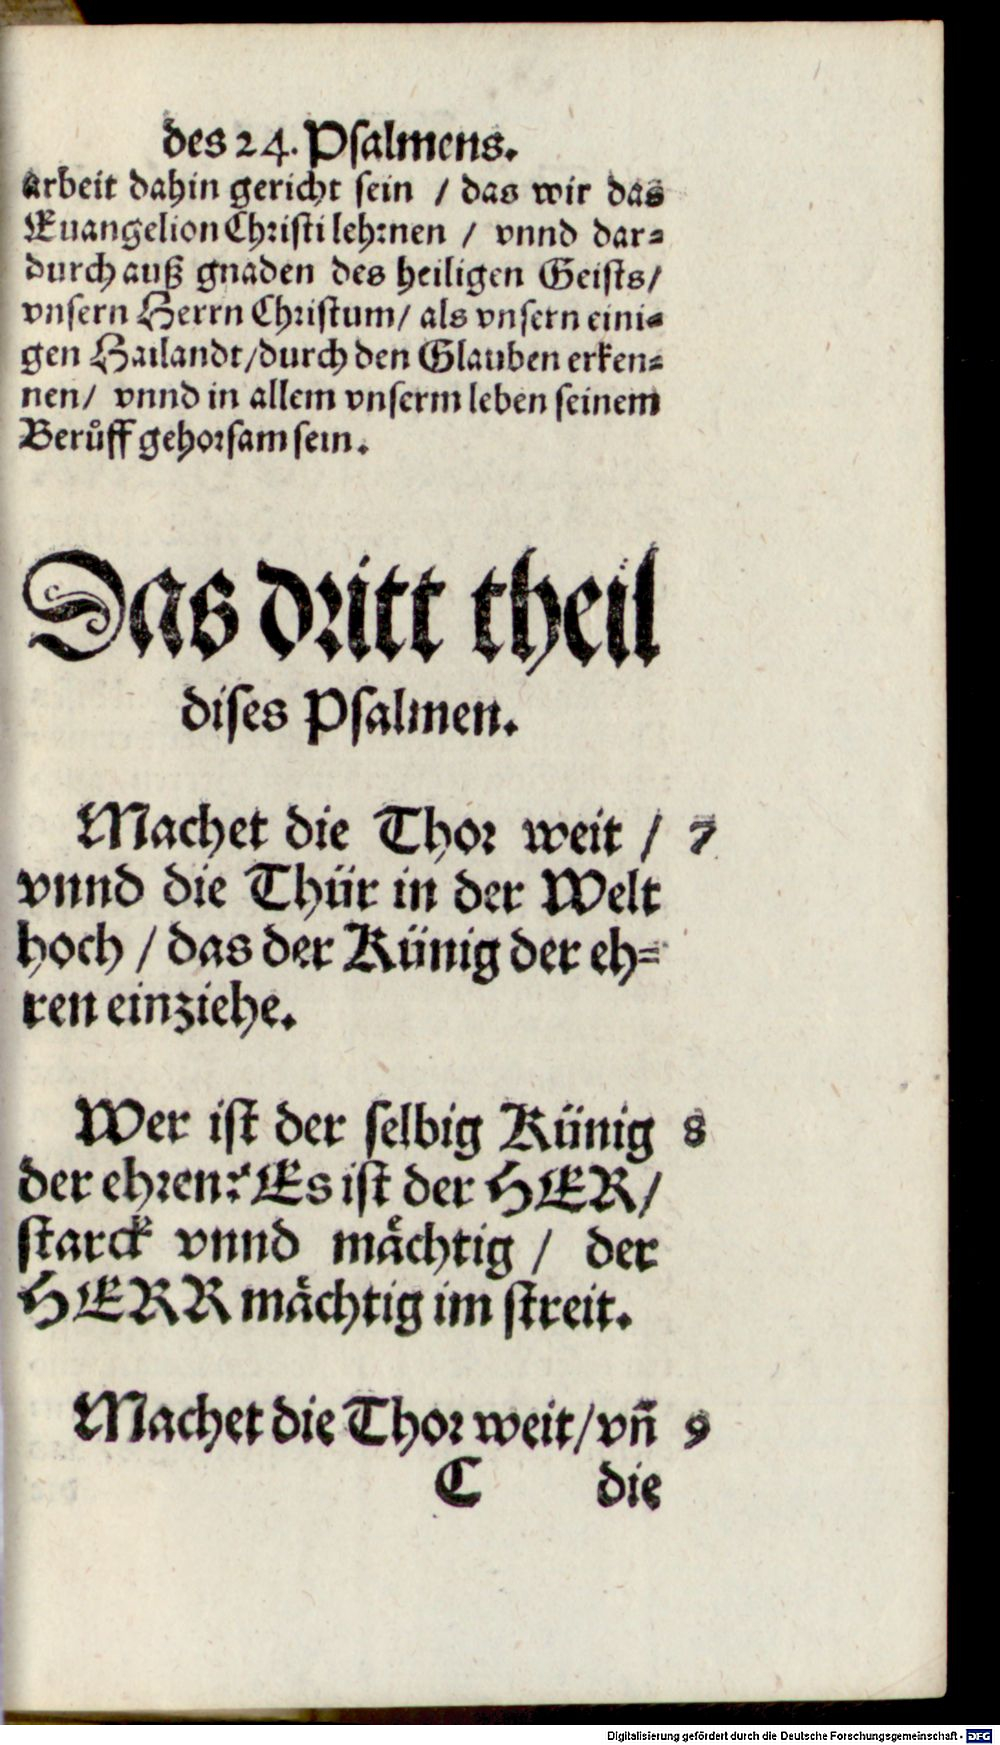 des 24. Psalmens.
arbeit dahin gericht sein / das wir das
Euangelion Christi lehrnen / vnnd dar-
durch auß gnaden des heiligen Geists/
vnsern Herrn Christum/ als vnsern eini-
gen Hailandt/durch den Glauben erken-
nen/ vnnd in allem vnserm leben seinem
Berůff gehorsam sein.
Das dritt theil
dises Psalmen.
Machet die Thor weit / 7
vnnd die Thür in der Welt
hoch / das der Künig der eh-
ren einziehe.
Wer ist der selbig Künig 8
der ehren? Es ist der HER/
starck vnnd mächtig / der
HERR mächtig im streit.
Machet die Thor weit/vñ 9
C die
Digitalisierung gefördert durch die Deutsche Forschungsgemeinschaft - DFG